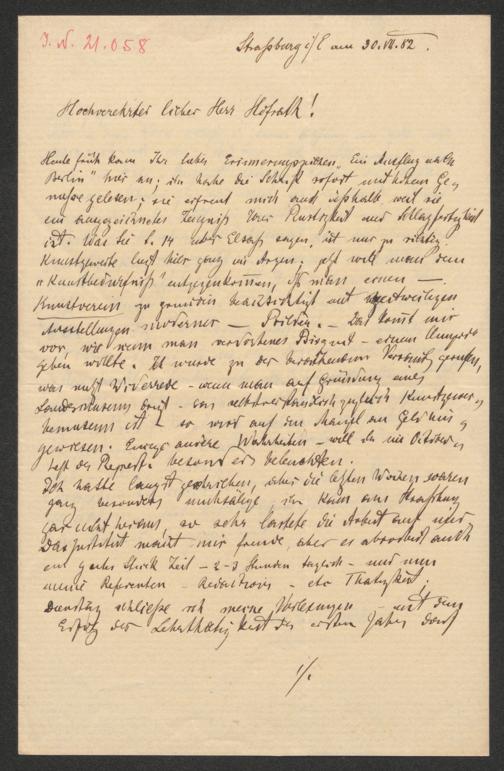 J. N. 21.058
Straßburg i/E am 30. VII. 82.
Hochverehrter lieber Herr Hofrath!
Heute früh kam Ihr liebes Erinnerungszeichen „Ein Ausflug nach
Berlin" hier an; ich habe die Schrift sofort mit hohem Ge-
nusse gelesen; sie erfreut mich auch deßhalb weil sie
ein ausgezeichnetes Zeugniß Ihrer Rüstigkeit und Schlagfertigkeit
ist. Was Sie S. 14 über Elsaß sagen, ist nur zu richtig.
Kunstgewerbe liegt hier ganz im Argen; jetzt will man dem
„Kunstbedürfniß" entgegenkommen, indem man einen —
Kunstverein zu gründen beabsichtigt mit zeitweiligen
Ausstellungen moderner — Bilder. — Das kommt mir
vor, wie wenn man verdorbenes Bisquit — einem Hungernden
geben wollte. Ich wurde zu der berathenden
was nützt Widerrede — wenn man auf Gründung eines
Landesmuseums dringt — das selbstverständlich zugleich Kunstgewer-
bemuseum ist — so wird auf den Mangel an Geld hin-
gewiesen. Einige andere Wahrheiten — will ich im October-
heft des Repert. besonders beleuchten.
Ich hätte längst geschrieben, aber die letzten Wochen waren
ganz besonders mühsälige, ich kam aus Straßburg
gar nicht heraus, so sehr lastete die Arbeit auf mir.
Das Institut macht mir Freude, aber es absorbirt auch
ein gutes Stück Zeit — 2–3 Stunden täglich — und nun
meine Referenten - Redactions - etc Thätigkeit.
Dienstag schließe ich meine Vorlesungen — mit dem
Erfolg der Lehrthätigkeit des ersten Jahres darf
./.